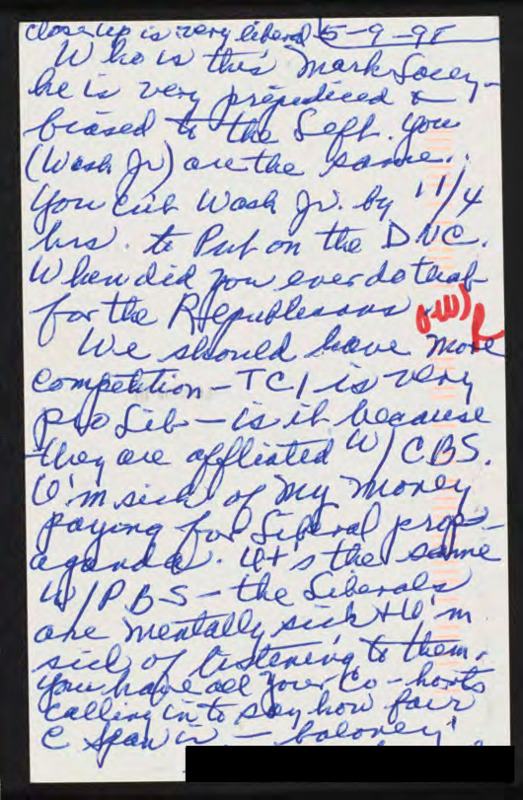 Close up is very liberal 5-9-98
Who is this Mark
he is very prejudiced &
biased to the Left. You
(Wash Jr) are the same.
You cut Wash Jr. by 1 1/4
hrs. to Put on the DNC.
When did you ever do that
for the Republicans
We should have more
competition - TCI is very
pro Lib - is it because
they are affliated W/CBS.
I'm sick of my money
paying for Liberal prop-
aganda. It's the same
W/PBS - the Liberals
are mentally sick + I'm
sick of listening to them.
You have all your Co-horts
calling in to say how fair
C Span is - baloney!